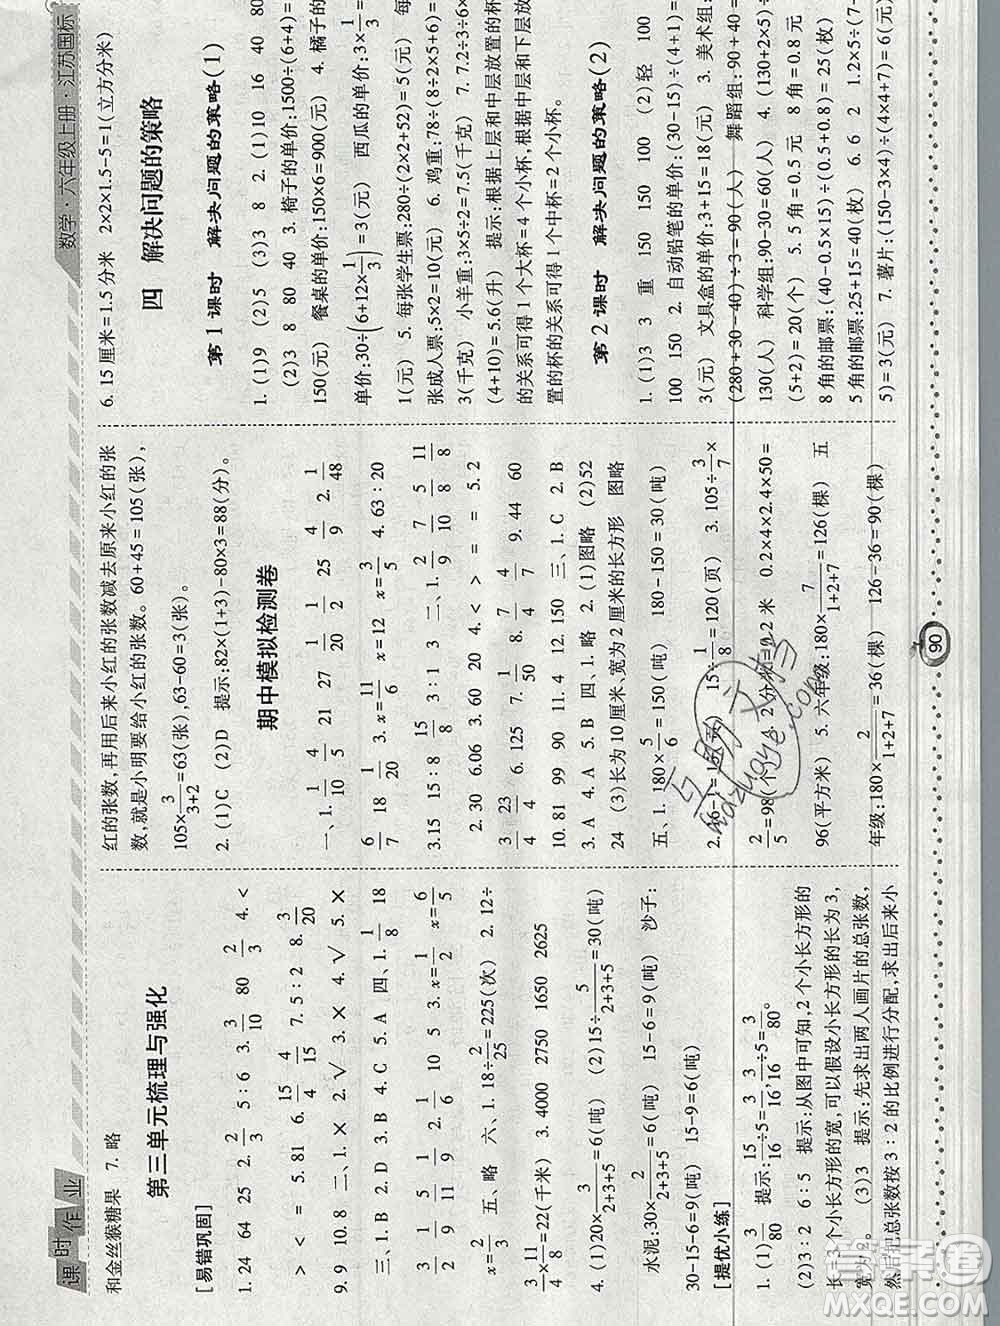 课时作业
数学·六年级上册·江苏国标
和金丝猴糖果 7. 略
第三单元梳理与强化
[易错巩固]
1. 24 64 25 2. 2/3 5:6 3. 3/10 80 2/3 4. <
> < < = 5. 81 6. 15/4 4/15 7. 5:2 8. 3/20
9. 9 10. 8 二、1. × 2. √ 3. × 4. √ 5. ×
三、1. B 2. D 3. B 4. C 5. A 四、1. 1/8 18
3/2 1/9 5/11 1/9 2. 1/6 2/10 5 3. x=1/2 x=6/5
x=2/3 五、略 六、1. 18÷2/25=225(次) 2. 12÷
3/4×11/8=22(千米) 3. 4000 2750 1650 2625
4. (1)20×3/(2+3+5)=6(吨) (2)15÷5/(2+3+5)=30(吨)
水泥:30×2/(2+3+5)=6(吨) 15-6=9(吨) 沙子:
30-15-6=9(吨) 15-9=6(吨)
[提优小练]
1. (1)3/80 提示:15/16÷5=3/16,3/16÷5=3/80。
(2)3:2 6:5 提示:从图中可知,2个小长方形的
长=3个小长方形的宽,可以假设小长方形的长为3,
宽为2。 (3)3 提示:先求出两人画片的总张数,
然后把总张数按3:2的比例进行分配,求出后来小
红的张数,再用后来小红的张数减去原来小红的张
数,就是小明要给小红的张数。60+45=105(张),
105×3/(3+2)=63(张),63-60=3(张)。
2. (1)C (2)D 提示:82×(1+3)-80×3=88(分)。
期中模拟检测卷
一、1. 1/10 4/5 21 27 1/20 1/2 25 4/9 2. 1/48
6/7 18 1/20 3. x=11/6 x=12 x=3/5 4. 63:20
3. 15 15:8 15/8 3:1 3 二、1. 2/9 7/10 5/8 11/8
2. 30 6.06 3. 60 20 4. < > = = 5. 2
3/4 23/4 6. 125 7. 1/50 8. 7/4 4/7 9. 44 60
10. 81 99 90 11. 4 12. 150 三、1. C 2. B
3. A 4. A 5. B 四、1. 略 2. (1)图略 (2)52
24 (3)长为10厘米、宽为2厘米的长方形 图略
五、1. 180×5/6=150(吨) 180-150=30(吨)
15÷1/8=120(页) 3. 105÷3/7×
2/5=98(个) 4. 2分米=0.2米 0.2×4×2.4×50=
96(平方米) 5. 六年级:180×7/(1+2+7)=126(棵) 五
年级:180×2/(1+2+7)=36(棵) 126-36=90(棵)
6. 15厘米=1.5分米 2×2×1.5-5=1(立方分米)
四 解决问题的策略
第1课时 解决问题的策略(1)
1. (1)9 (2)5 (3)3 8 2. (1)10 16 40 80
(2)3 8 80 40 3. 椅子的单价:1500÷(6+4)=
150(元) 餐桌的单价:150×6=900(元) 4. 橘子的
单价:30÷(6+12×1/3)=3(元) 西瓜的单价:3×1/3=
1(元) 5. 每张学生票:280÷(2×2+52)=5(元) 每
张成人票:5×2=10(元) 6. 鸡重:78÷(8÷2×5+6)=
3(千克) 小羊重:3×5÷2=7.5(千克) 7. 7.2÷3×6÷
(4+10)=5.6(升) 提示:根据上层和中层放置的杯
的关系可得1个大杯=4个小杯,根据中层和下层放
置的杯的关系可得1个中杯=2个小杯。
第2课时 解决问题的策略(2)
1. (1)3 3 重 150 150 100 (2)轻 100
100 150 2. 自动铅笔的单价:(30-15)÷(4+1)=
3(元) 文具盒的单价:3+15=18(元) 3. 美术组:
(280+30-40)÷3=90(人) 舞蹈组:90+40=
130(人) 科学组:90-30=60(人) 4. (130+2×5)÷
(5+2)=20(个) 5. 5角=0.5元 8角=0.8元
8角的邮票:(40-0.5×15)÷(0.5+0.8)=25(枚)
5角的邮票:25+15=40(枚) 6. 6 2 1.2×5÷(7-
5)=3(元) 7. 薯片:(150-3×4)÷(4×4+7)=6(元)
90
答案圈
MXQE.COM